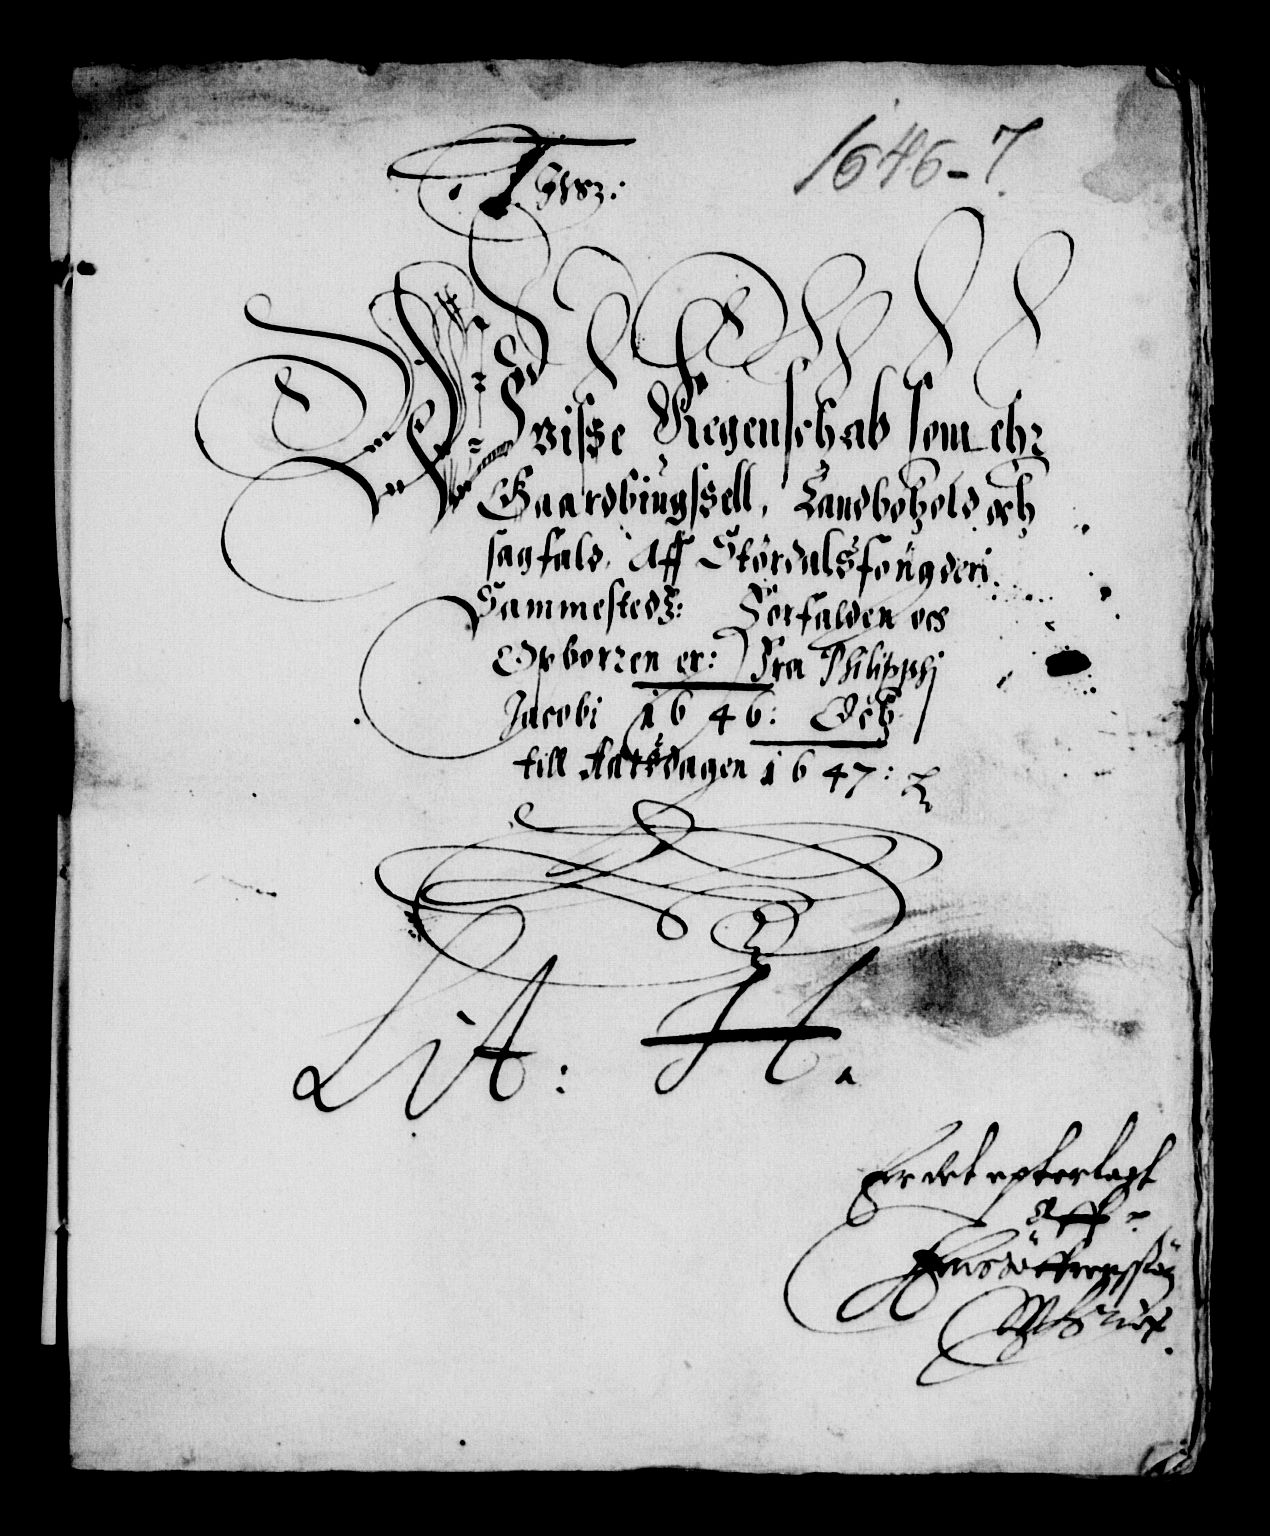 1646-7.
Uvisse Regenschab som ehr
Gaardbiugssell, Landbohold och
sagfald, Aff Stördalsfougderi
Sammestedz: Forfalden och
Opborren er: Fra Philipphi
Jacobi 1646: Och
till Aarsdagen 1647:
Lit: H.
Er det epterlagt
Aff